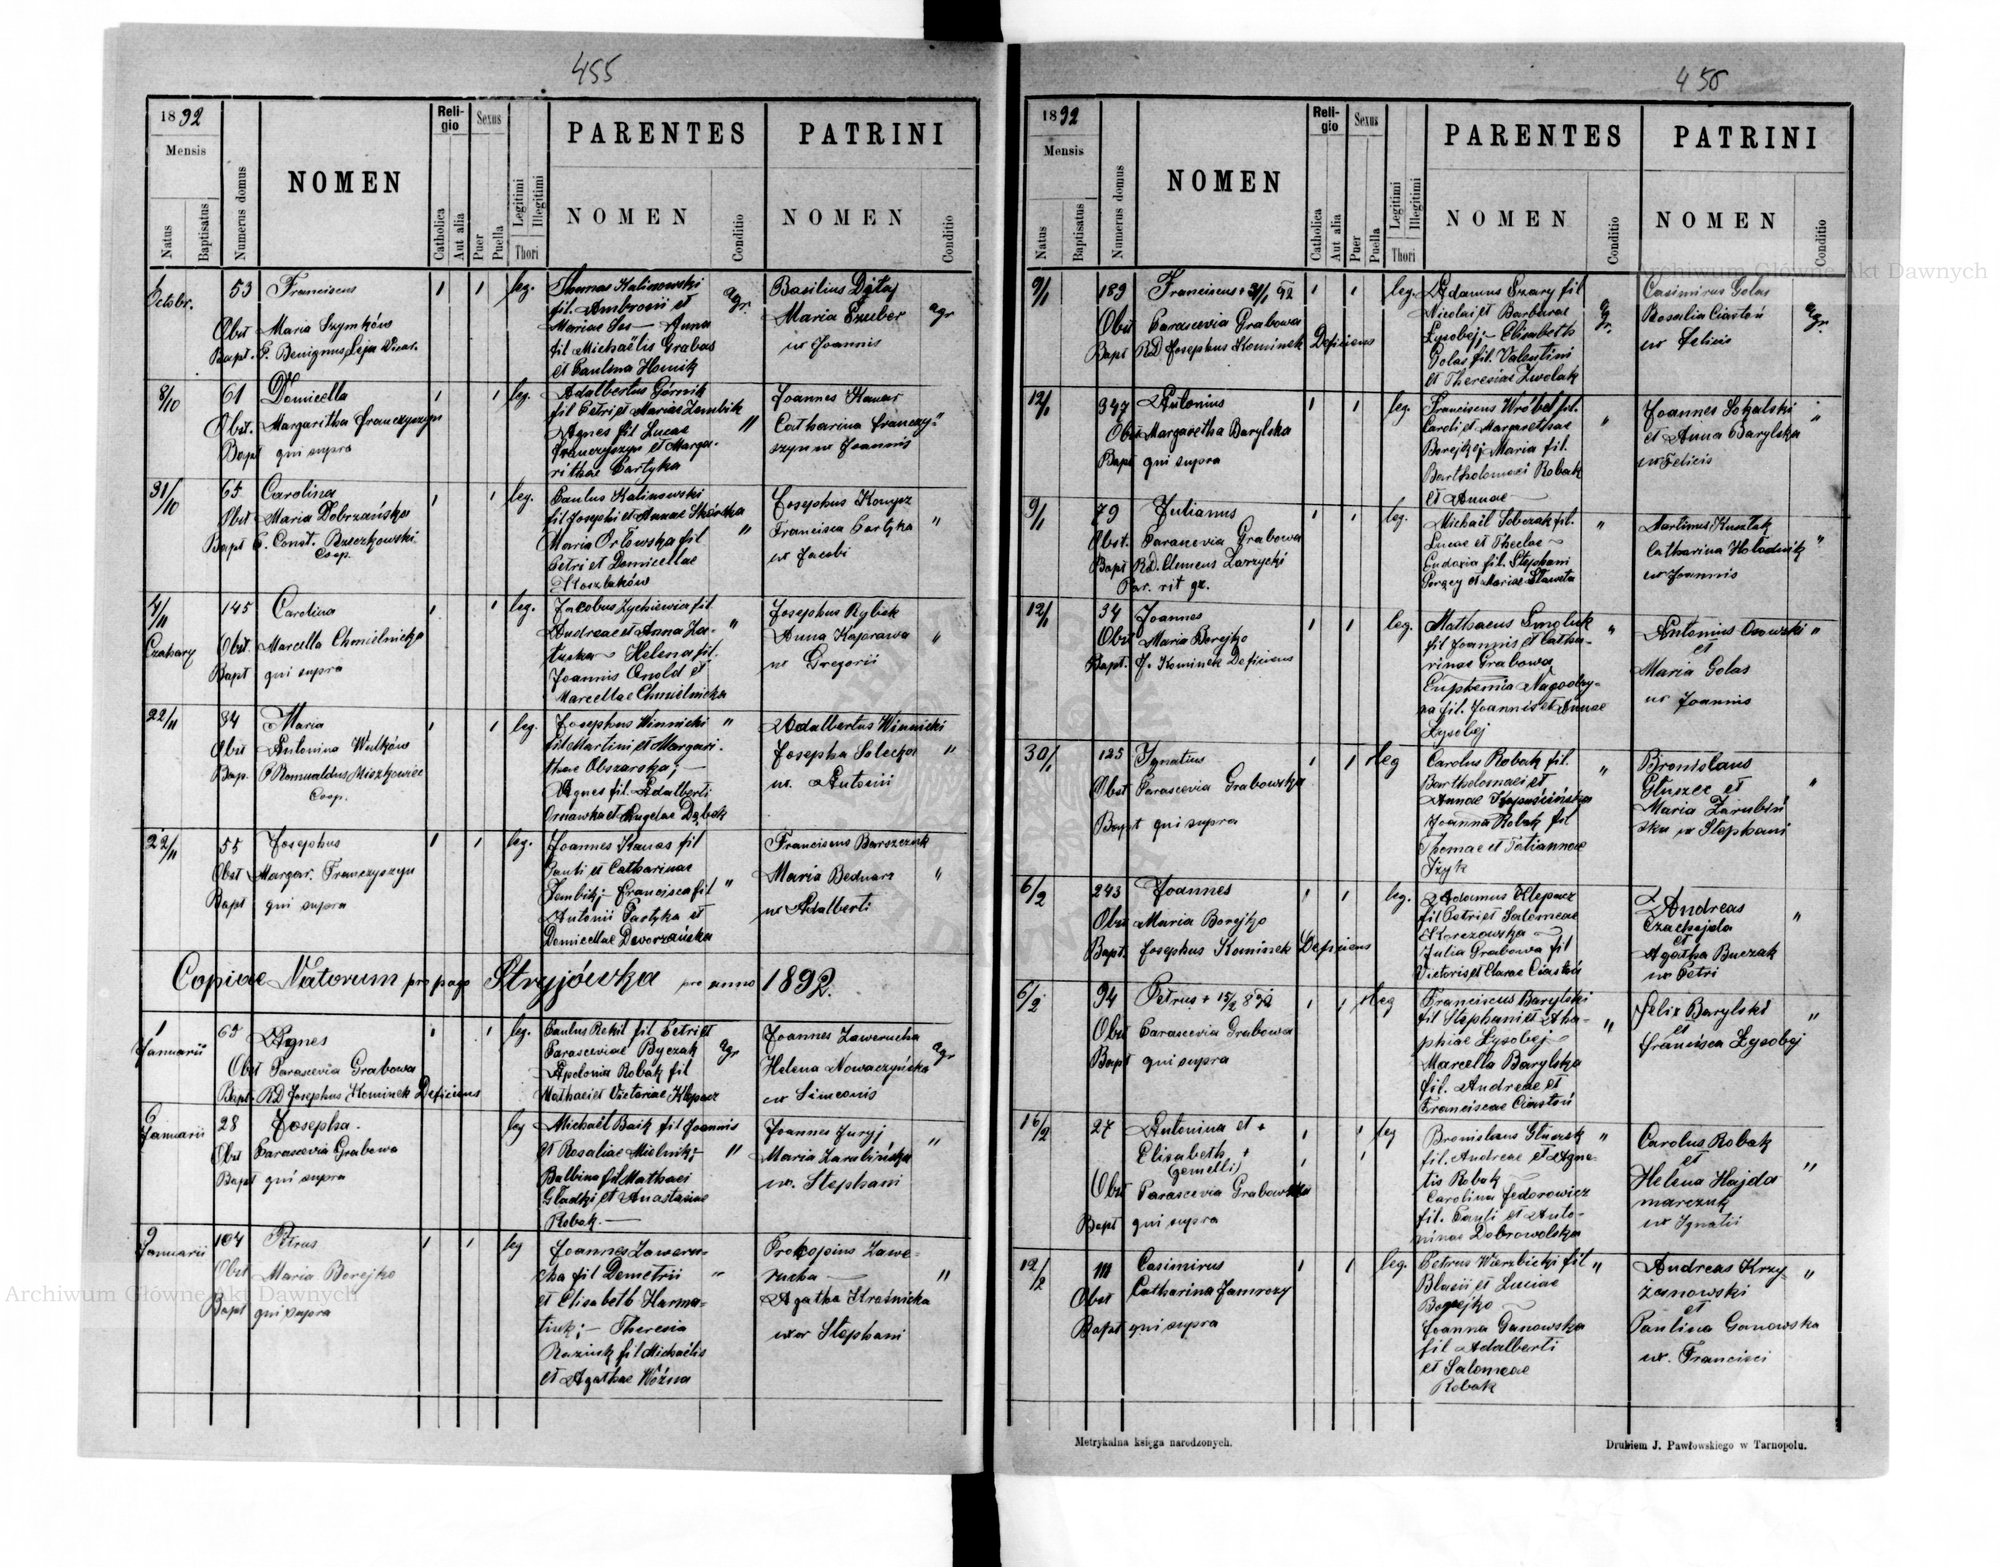 455
1892
Mensis
Natus
Baptisatus
Numerus domus
NOMEN
Reli-
gio
Catholica
Aut alia
Sexus
Puer
Puella
Legitimi
Illegitimi
Thori
PARENTES
NOMEN
Conditio
PATRINI
NOMEN
Conditio
Octobr.
53 Franciscus
Obst Maria Szymków
Bapt. P. Benignus Leja Vicar.
leg.
Thomas Kalinowski
fil. Ambrosii et
Mariae Ses — Anna
fil Michaëlis Grabas
et Paulina Homik
agr.
Basilius
Maria Szuber
ux Joannis
agr
8/10
61 Domicella
Obst. Margaritha Franczyszyn
Bapt qui supra
leg.
Adalbertus Górnik
fil Petri et Mariae Zembik
Agnes fil Lucae
Franczyszyn et Marga-
rithae Partyka
"
Joannes Kanas
Catharina Franczy-
szyn ux Joannis
"
31/10
65 Carolina
Obst Maria Dobrzańska
Bapt P. Const. Rzeczkowski
Coop.
leg.
Paulus Kalinowski
fil Josephi et Annae Skórska
Maria Orłowska fil
Petri et Domicellae
Koszłaków
"
Josephus
Francisca Partyka
ux Jacobi
"
4/11
Czahary
145 Carolina
Obst. Marcella Chmielnicka
Bapt qui supra
leg.
Jacobus Zychiewicz fil.
Andreae et Anna
Helena fil.
Joannis Onold et
Marcellae Chmielnicka
"
Josephus Rybak
Anna Kaprawa
ux Gregorii
"
22/11
84 Maria
Obst Antonina Wulków
Bap. P Romualdus Mieszkowiec
Coop.
leg.
Josephus Winnicki
fil Martini et Margari-
thae Obszarska; —
Agnes fil. Adalberti
Ornawka et Angelae Dąbek
"
Adalbertus Winnicki
Josepha Solecka
ux. Antonii
"
22/11
55 Josephus
Obst Margar. Franczyszyn
Bapt qui supra
leg.
Joannes Kanas fil
Pauli et Catharinae
Zembik; Francisca fil
Antonii Partyka et
Domicellae Dworzańska
"
Franciscus Barszczuk
Maria Bednarz
ux Adalberti
"
Copiae Natorum pro pago Stryjówka pro anno 1892.
1
Januarii
65 Agnes
Obst Parascevia Grabowa
Bapt. RD Josephus Kominek Deficiens
leg.
Paulus Rekil fil Petri et
Parasceviae Byczak
Apolonia Robak fil
Mathaei et Victoriae Klepacz
agr
Joannes Zawerucha
Helena Nowaczyńska
ux Simeonis
agr
6
Januarii
28 Josepha.
Obst Parascevia Grabowa
Bapt qui supra
leg
Michaël Baik fil Joannis
et Rosaliae Mielnik;
Balbina fil Mathaei
Gładki et Anastasiae
Robak. —
"
Joannes Juryj
Maria Zarubińska
ux. Stephani
"
9
Januarii
104 Petrus
Obst Maria Borejko
Bapt qui supra
leg
Joannes Zaweru-
cha fil Demetrii
et Elisabeth Harma-
tiuk; — Theresia
Raziuk fil Michaëlis
et Agathae Woźna
"
Prokopius Zawe-
rucha —
Agatha Kraśnicka
uxor Stephani
"
456
1892
Mensis
Natus
Baptisatus
Numerus domus
NOMEN
Reli-
gio
Catholica
Aut alia
Sexus
Puer
Puella
Legitimi
Illegitimi
Thori
PARENTES
NOMEN
Conditio
PATRINI
NOMEN
Conditio
9/1
189 Franciscus + 31/1 92
Obst Parascevia Grabowa
Bapt RD Josephus Kominek Deficiens
leg.
Adamus Szary fil
Nicolai et Barbarae
Łysobej; — Elisabeth
Golas fil. Valentini
et Theresiae Zwolak
agr.
Casimirus Golas
Rosalia Ciastoń
ux Felicis
agr.
12/1
347 Antonius
Obst Margaretha Barylska
Bapt qui supra
leg.
Franciscus Wróbel fil.
Caroli et Margarethae
Borejko; Maria fil.
Bartholomaei Robak
et Annae
"
Joannes Sokalski
et Anna Barylska
ux Felicis
"
9/1
79 Julianus
Obst. Parascevia Grabowa
Bapt Rd. Clemens Zarzycki
Par. rit gr.
leg.
Michaël Sobczak fil.
Lucae et Theclae
Eudoxia fil. Stephani
Gorzej et Mariae Sławeta
"
Martinus Kusztak
Catharina Hołodnik
ux Joannis
"
12/1
34 Joannes
Obst Maria Borejko
Bapt. J. Kominek Deficiens
leg.
Mathaeus Smoluk
fil Joannis et Catha-
rinae Grabowa
Euphemia Nagoorzy-
na fil. Joannis et Annae
Łysobej
"
Antonius Osowski
et
Maria Golas
ux Joannis
"
30/1
125 Ignatius
Obst Parascevia Grabowska
Bapt qui supra
leg
Carolus Robak fil.
Bartholomaei et
Annae Kapuścińska
Joanna Robak fil
Thomae et Tatiannae
Jzyk
"
Bronislaus
Głuszec et
Maria Zarubiń
ska ux Stephani
"
6/2
243 Joannes
Obst Maria Borejko
Bapt. Josephus Kominek Deficiens
leg.
Adamus Klepacz
fil Petri et Salomeae
Korczowska
Julia Grabowa fil
Victoris et Clarae Ciastoń
Andreas
Czachajda
et
Agatha Buczak
ux Petri
"
6/2
94 Petrus + 15/2 892
Obst Parascevia Grabowa
Bapt qui supra
leg
Franciscus Barylski
fil Stephani et Aha-
phiae Łysobej
Marcella Barylska
fil. Andreae et
Franciscae Ciastoń
"
Felix Barylski
et
Francisca Łysobej
"
16/2
27 Antonina et +
Elisabeth +
(gemelli)
Obst Parascevia Grabowska
Bapt qui supra
leg
Bronislaus Głuszek
fil. Andreae et Agne-
tis Robak
Carolina Fedorowicz
fil. Pauli et Anto-
ninae Dobrowolska
"
Carolus Robak
et
Helena Hajda
marczuk
ux Ignatii
"
12/2
111 Casimirus
Obst Catharina Jamrozy
Bapt qui supra
leg.
Petrus Wierzbicki fil
Blasii et Luciae
Borejko
Joanna Ganowska
fil Adalberti
et Salomeae
Robak
"
Andreas Krzy-
żanowski
et
Paulina Ganowska
ux. Francisci
"
Metrykalna księga narodzonych.
Drukiem J. Pawłowskiego w Tarnopolu.
Archiwum Główne Akt Dawnych
Archiwum Główne Akt Dawnych